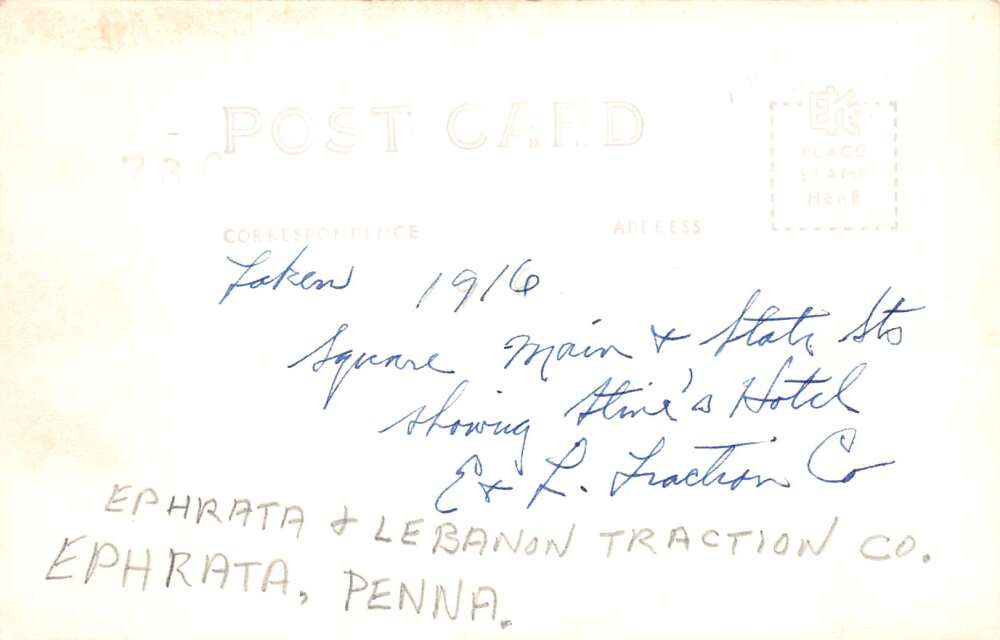 POST CARD
EKC
PLACE
STAMP
HERE
730
CORRESPONDENCE
ADDRESS
Taken 1916
Square Main & State Sts
showing Stine's Hotel
E & L. Traction Co
EPHRATA & LEBANON TRACTION CO.
EPHRATA, PENNA.